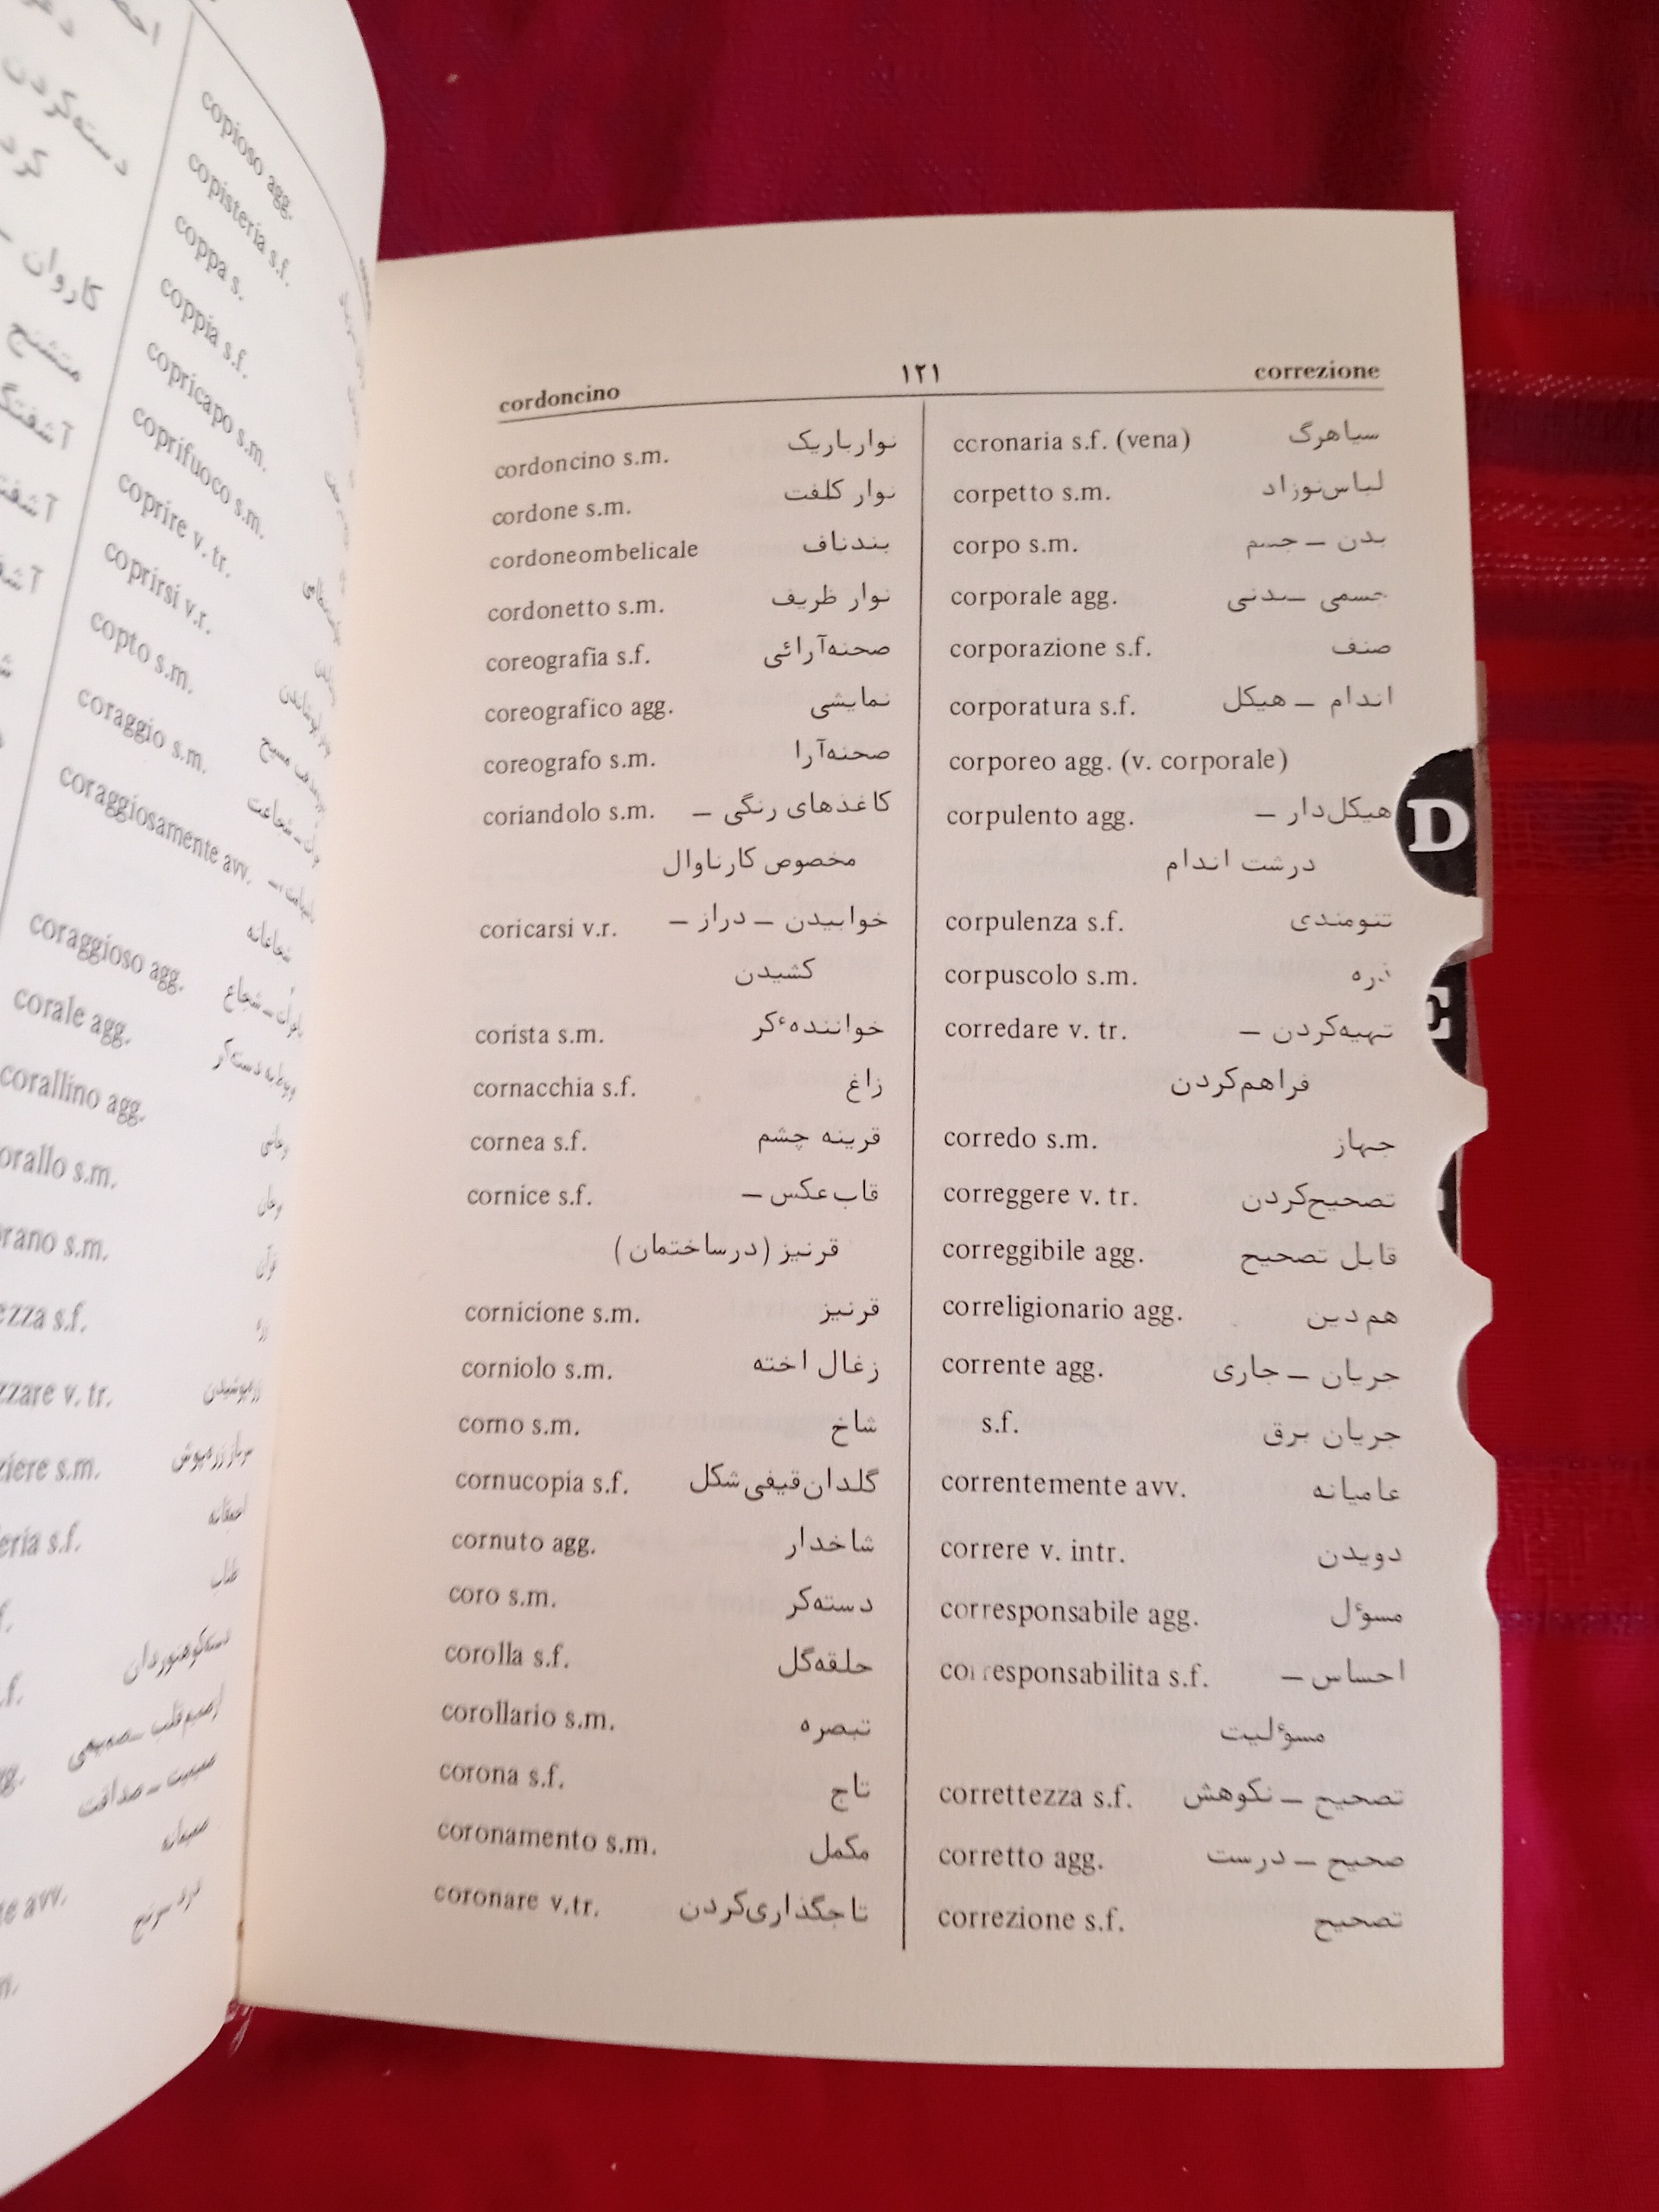 copioso agg.
copisteria s.f.
coppa s.
coppia s.f.
copricapo s.m.
coprifuoco s.m.
coprire v. tr.
coprirsi v.r.
copto s.m.
coraggio s.m.
coraggiosamente avv.
شجاعانه
coraggioso agg.
corale agg.
corallino agg.
orallo s.m.
rano s.m.
ezza s.f.
zzare v. tr.
ziere s.m.
eria s.f.
cordoncino
۱۲۱
correzione
cordoncino s.m. نوارباریک
cordone s.m. نوار کلفت
cordoneombelicale بندناف
cordonetto s.m. نوار ظریف
coreografia s.f. صحنه‌آرائی
coreografico agg. نمایشی
coreografo s.m. صحنه‌آرا
coriandolo s.m. کاغذهای رنگی –
مخصوص کارناوال
coricarsi v.r. خوابیدن – دراز –
کشیدن
corista s.m. خوانندهٔ کر
cornacchia s.f. زاغ
cornea s.f. قرینه چشم
cornice s.f. قاب‌عکس –
قرنیز (درساختمان)
cornicione s.m. قرنیز
corniolo s.m. زغال اخته
corno s.m. شاخ
cornucopia s.f. گلدان‌قیفی‌شکل
cornuto agg. شاخدار
coro s.m. دسته‌کر
corolla s.f. حلقه‌گل
corollario s.m. تبصره
corona s.f. تاج
coronamento s.m. مکمل
coronare v.tr. تاجگذاری‌کردن
ccronaria s.f. (vena) سیاهرگ
corpetto s.m. لباس‌نوزاد
corpo s.m. بدن – جسم
corporale agg. جسمی – بدنی
corporazione s.f. صنف
corporatura s.f. اندام – هیکل
corporeo agg. (v. corporale)
corpulento agg. هیکل‌دار –
درشت اندام
corpulenza s.f. تنومندی
corpuscolo s.m. ذره
corredare v. tr. تهیه‌کردن –
فراهم‌کردن
corredo s.m. جهاز
correggere v. tr. تصحیح‌کردن
correggibile agg. قابل تصحیح
correligionario agg. هم‌دین
corrente agg. جریان – جاری
s.f. جریان برق
correntemente avv. عامیانه
correre v. intr. دویدن
corresponsabile agg. مسؤل
corresponsabilita s.f. احساس –
مسؤلیت
correttezza s.f. تصحیح – نکوهش
corretto agg. صحیح – درست
correzione s.f. تصحیح
D